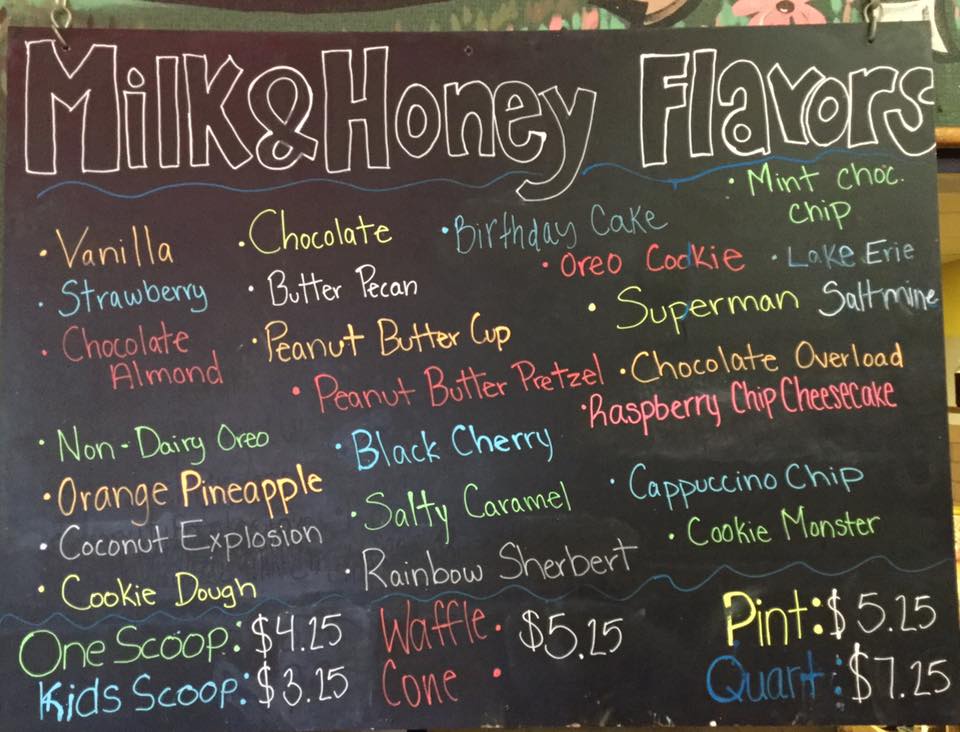 Milk & Honey Flavors
• Mint choc. chip
• Vanilla
• Chocolate
• Birthday Cake
• Oreo Cookie
• Lake Erie Saltmine
• Strawberry
• Butter Pecan
• Superman
• Chocolate Almond
• Peanut Butter Cup
• Chocolate Overload
• Peanut Butter Pretzel
• Raspberry Chip Cheesecake
• Non-Dairy Oreo
• Black Cherry
• Orange Pineapple
• Salty Caramel
• Cappuccino Chip
• Coconut Explosion
• Cookie Monster
• Cookie Dough
• Rainbow Sherbert
One Scoop: $4.25
Kids Scoop: $3.25
Waffle Cone : $5.25
Pint: $5.25
Quart: $7.25